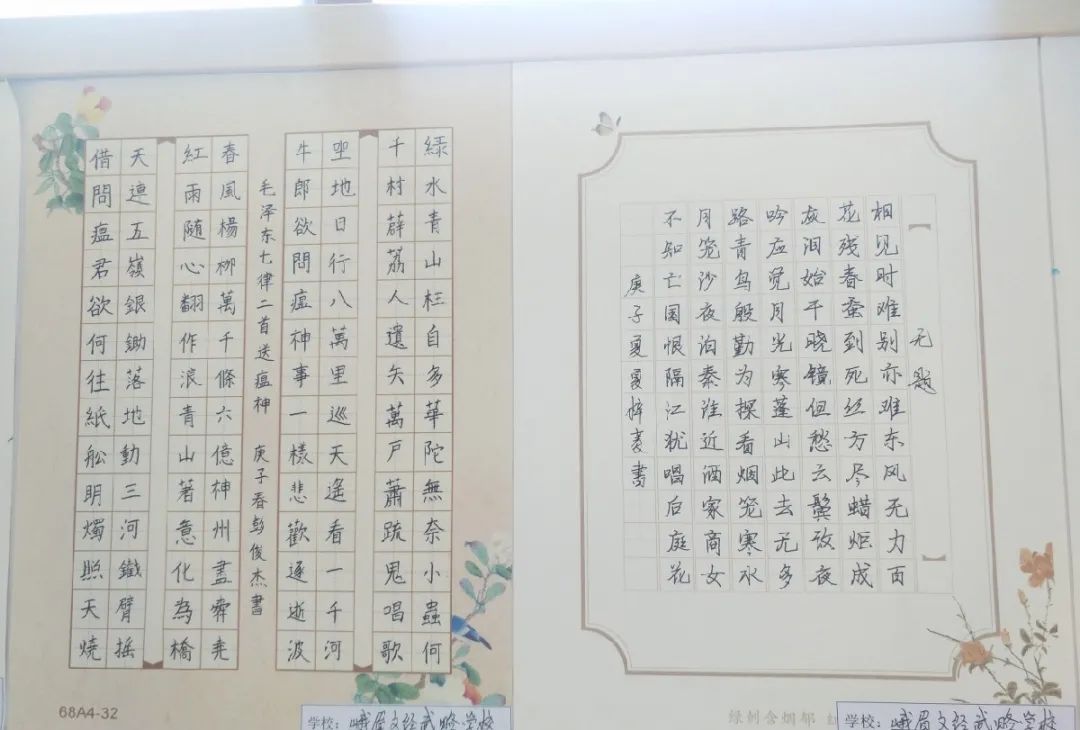 緑水青山枉自多華陀無奈小蟲何
千村薜荔人遺矢萬戸蕭疏鬼唱歌
坐地日行八萬里巡天遥看一千河
牛郎欲問瘟神事一樣悲歡逐逝波
毛泽东七律二首送瘟神 庚子春彭俊杰書
春風楊柳萬千條六億神州盡舜尭
紅雨随心翻作浪青山著意化為橋
天連五嶺銀鋤落地動三河鐵臂摇
借問瘟君欲何往紙船明燭照天燒
68A4-32
学校：峨眉文经武略学校
无题
相见时难别亦难东风无力百
花残春蚕到死丝方尽蜡炬成
灰泪始干晓镜但愁云鬓改夜
吟应觉月光寒蓬山此去无多
路青鸟殷勤为探看烟笼寒水
月笼沙夜泊秦淮近酒家商女
不知亡国恨隔江犹唱后庭花
庚子夏夏梓书
绿树含烟郁
学校：峨眉文经武略学校